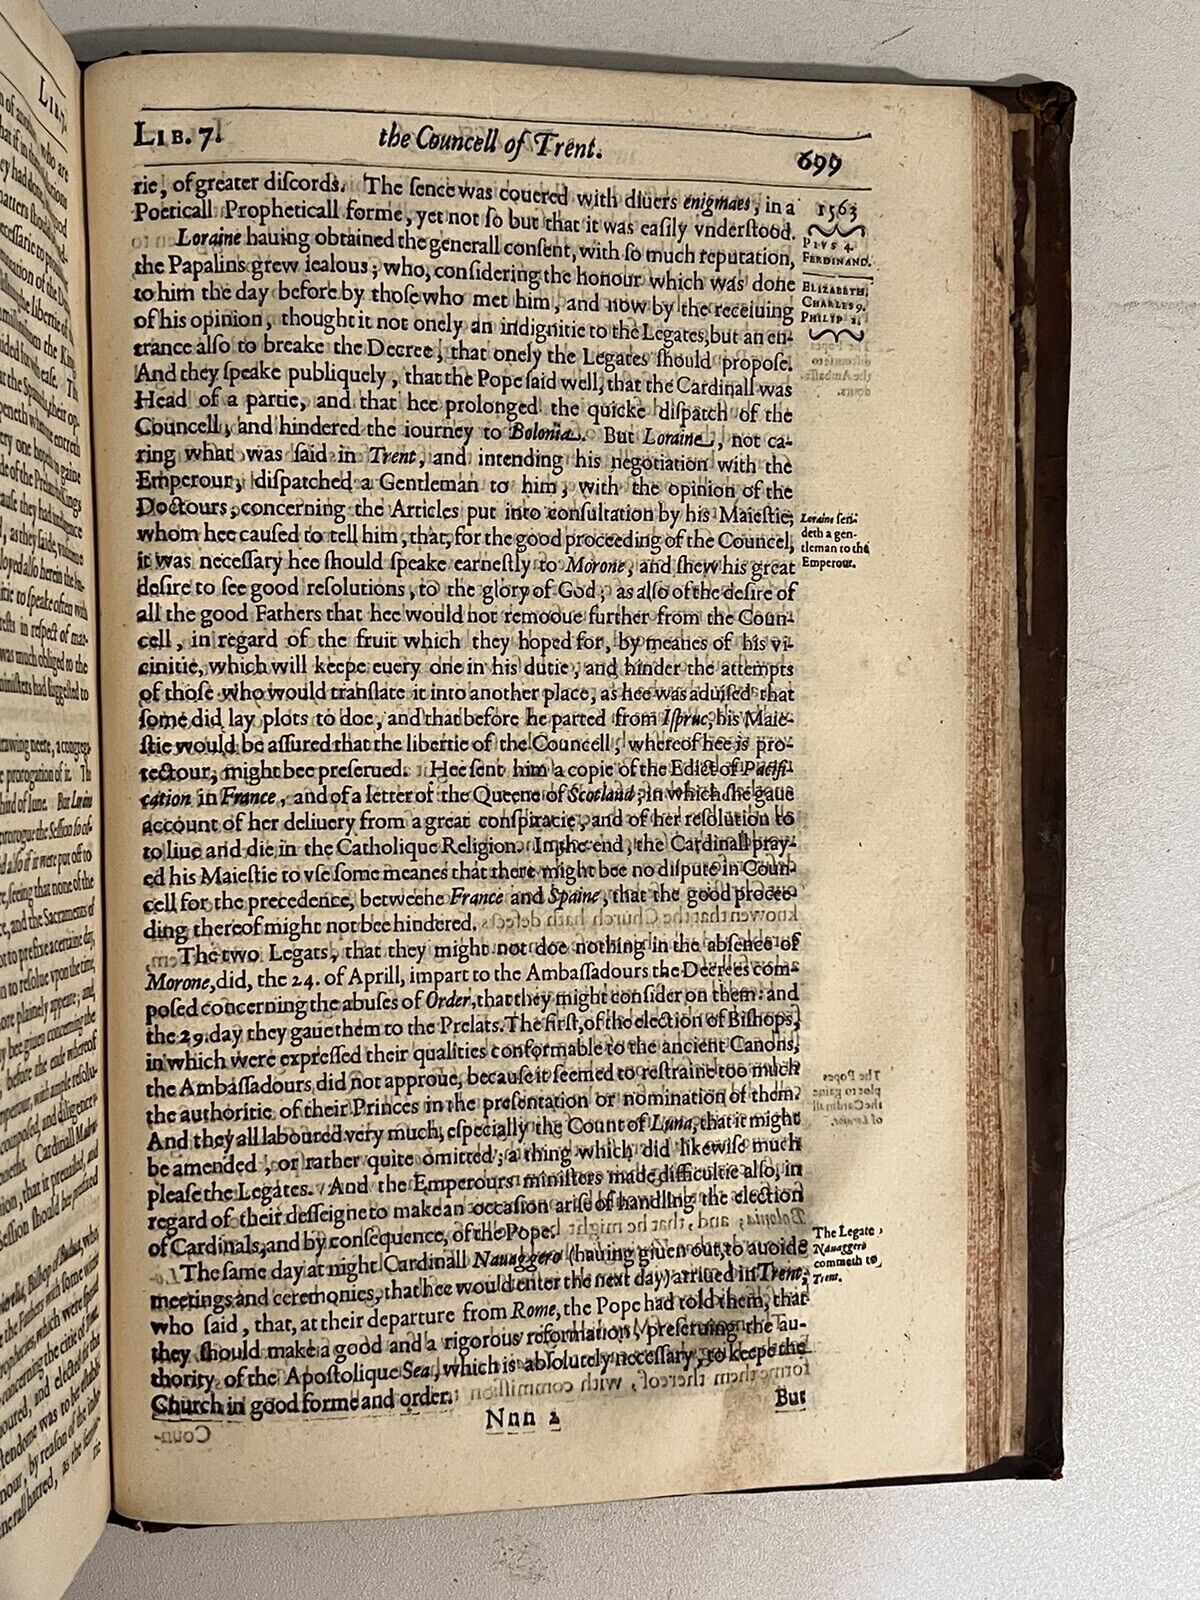 LIB. 7. the Councell of Trent. 699
rie, of greater discords. The sence was couered with diuers enigmaes, in a
Poeticall Propheticall forme, yet not so but that it was easily vnderstood.
Loraine hauing obtained the generall consent, with so much reputation,
the Papalins grew iealous; who, considering the honour which was done
to him the day before by those who met him, and now by the receiuing
of his opinion, thought it not onely an indignitie to the Legates, but an en-
trance also to breake the Decree, that onely the Legates should propose.
And they speake publiquely, that the Pope said well, that the Cardinall was
Head of a partie, and that hee prolonged the quicke dispatch of the
Councell, and hindered the iourney to Bolonia. But Loraine, not ca-
ring what was said in Trent, and intending his negotiation with the
Emperour, dispatched a Gentleman to him, with the opinion of the
Doctours, concerning the Articles put into consultation by his Maiestie;
whom hee caused to tell him, that, for the good proceeding of the Councel,
it was necessary hee should speake earnestly to Morone, and shew his great
desire to see good resolutions, to the glory of God, as also of the desire of
all the good Fathers that hee would not remooue further from the Coun-
cell, in regard of the fruit which they hoped for, by meanes of his vi-
cinitie, which will keepe euery one in his dutie, and hinder the attempts
of those who would translate it into another place, as hee was aduised that
some did lay plots to doe, and that before he parted from Ispruc, his Maie-
stie would be assured that the libertie of the Councell, whereof hee is pro-
tectour, might bee preserued. Hee sent him a copie of the Edict of Pacifi-
cation in France, and of a letter of the Queene of Scotland, in which she gaue
account of her deliuery from a great conspiracie, and of her resolution to
to liue and die in the Catholique Religion. In the end, the Cardinall pray-
ed his Maiestie to vse some meanes that there might bee no dispute in Coun-
cell for the precedence, betweene France and Spaine, that the good procee-
ding thereof might not bee hindered.
The two Legats, that they might not doe nothing in the absence of
Morone, did, the 24. of Aprill, impart to the Ambassadours the Decrees com-
posed concerning the abuses of Order, that they might consider on them: and
the 29. day they gaue them to the Prelats. The first, of the election of Bishops,
in which were expressed their qualities conformable to the ancient Canons,
the Ambassadours did not approue, because it seemed to restraine too much
the authoritie of their Princes in the presentation or nomination of them.
And they all laboured very much, especially the Count of Luna, that it might
be amended, or rather quite omitted; a thing which did likewise much
please the Legates. And the Emperours ministers made difficultie also, in
regard of their desseigne to make an occasion arise of handling the election
of Cardinals, and by consequence, of the Pope.
The same day at night Cardinall Nauaggero (hauing giuen out, to auoide
meetings and ceremonies, that hee would enter the next day) arriued in Trent;
who said, that, at their departure from Rome, the Pope had told them, that
they should make a good and a rigorous reformation, preseruing the au-
thority of the Apostolique Sea, which is absolutely necessary, to keepe the
Church in good forme and order.
Nnn 2 But
1563
PIVS 4.
FERDINAND.
ELIZABETH.
CHARLES 9.
PHILIP 2.
Loraine sen-
deth a gen-
tleman to the
Emperour.
The Legate
Nauaggero
commeth to
Trent.